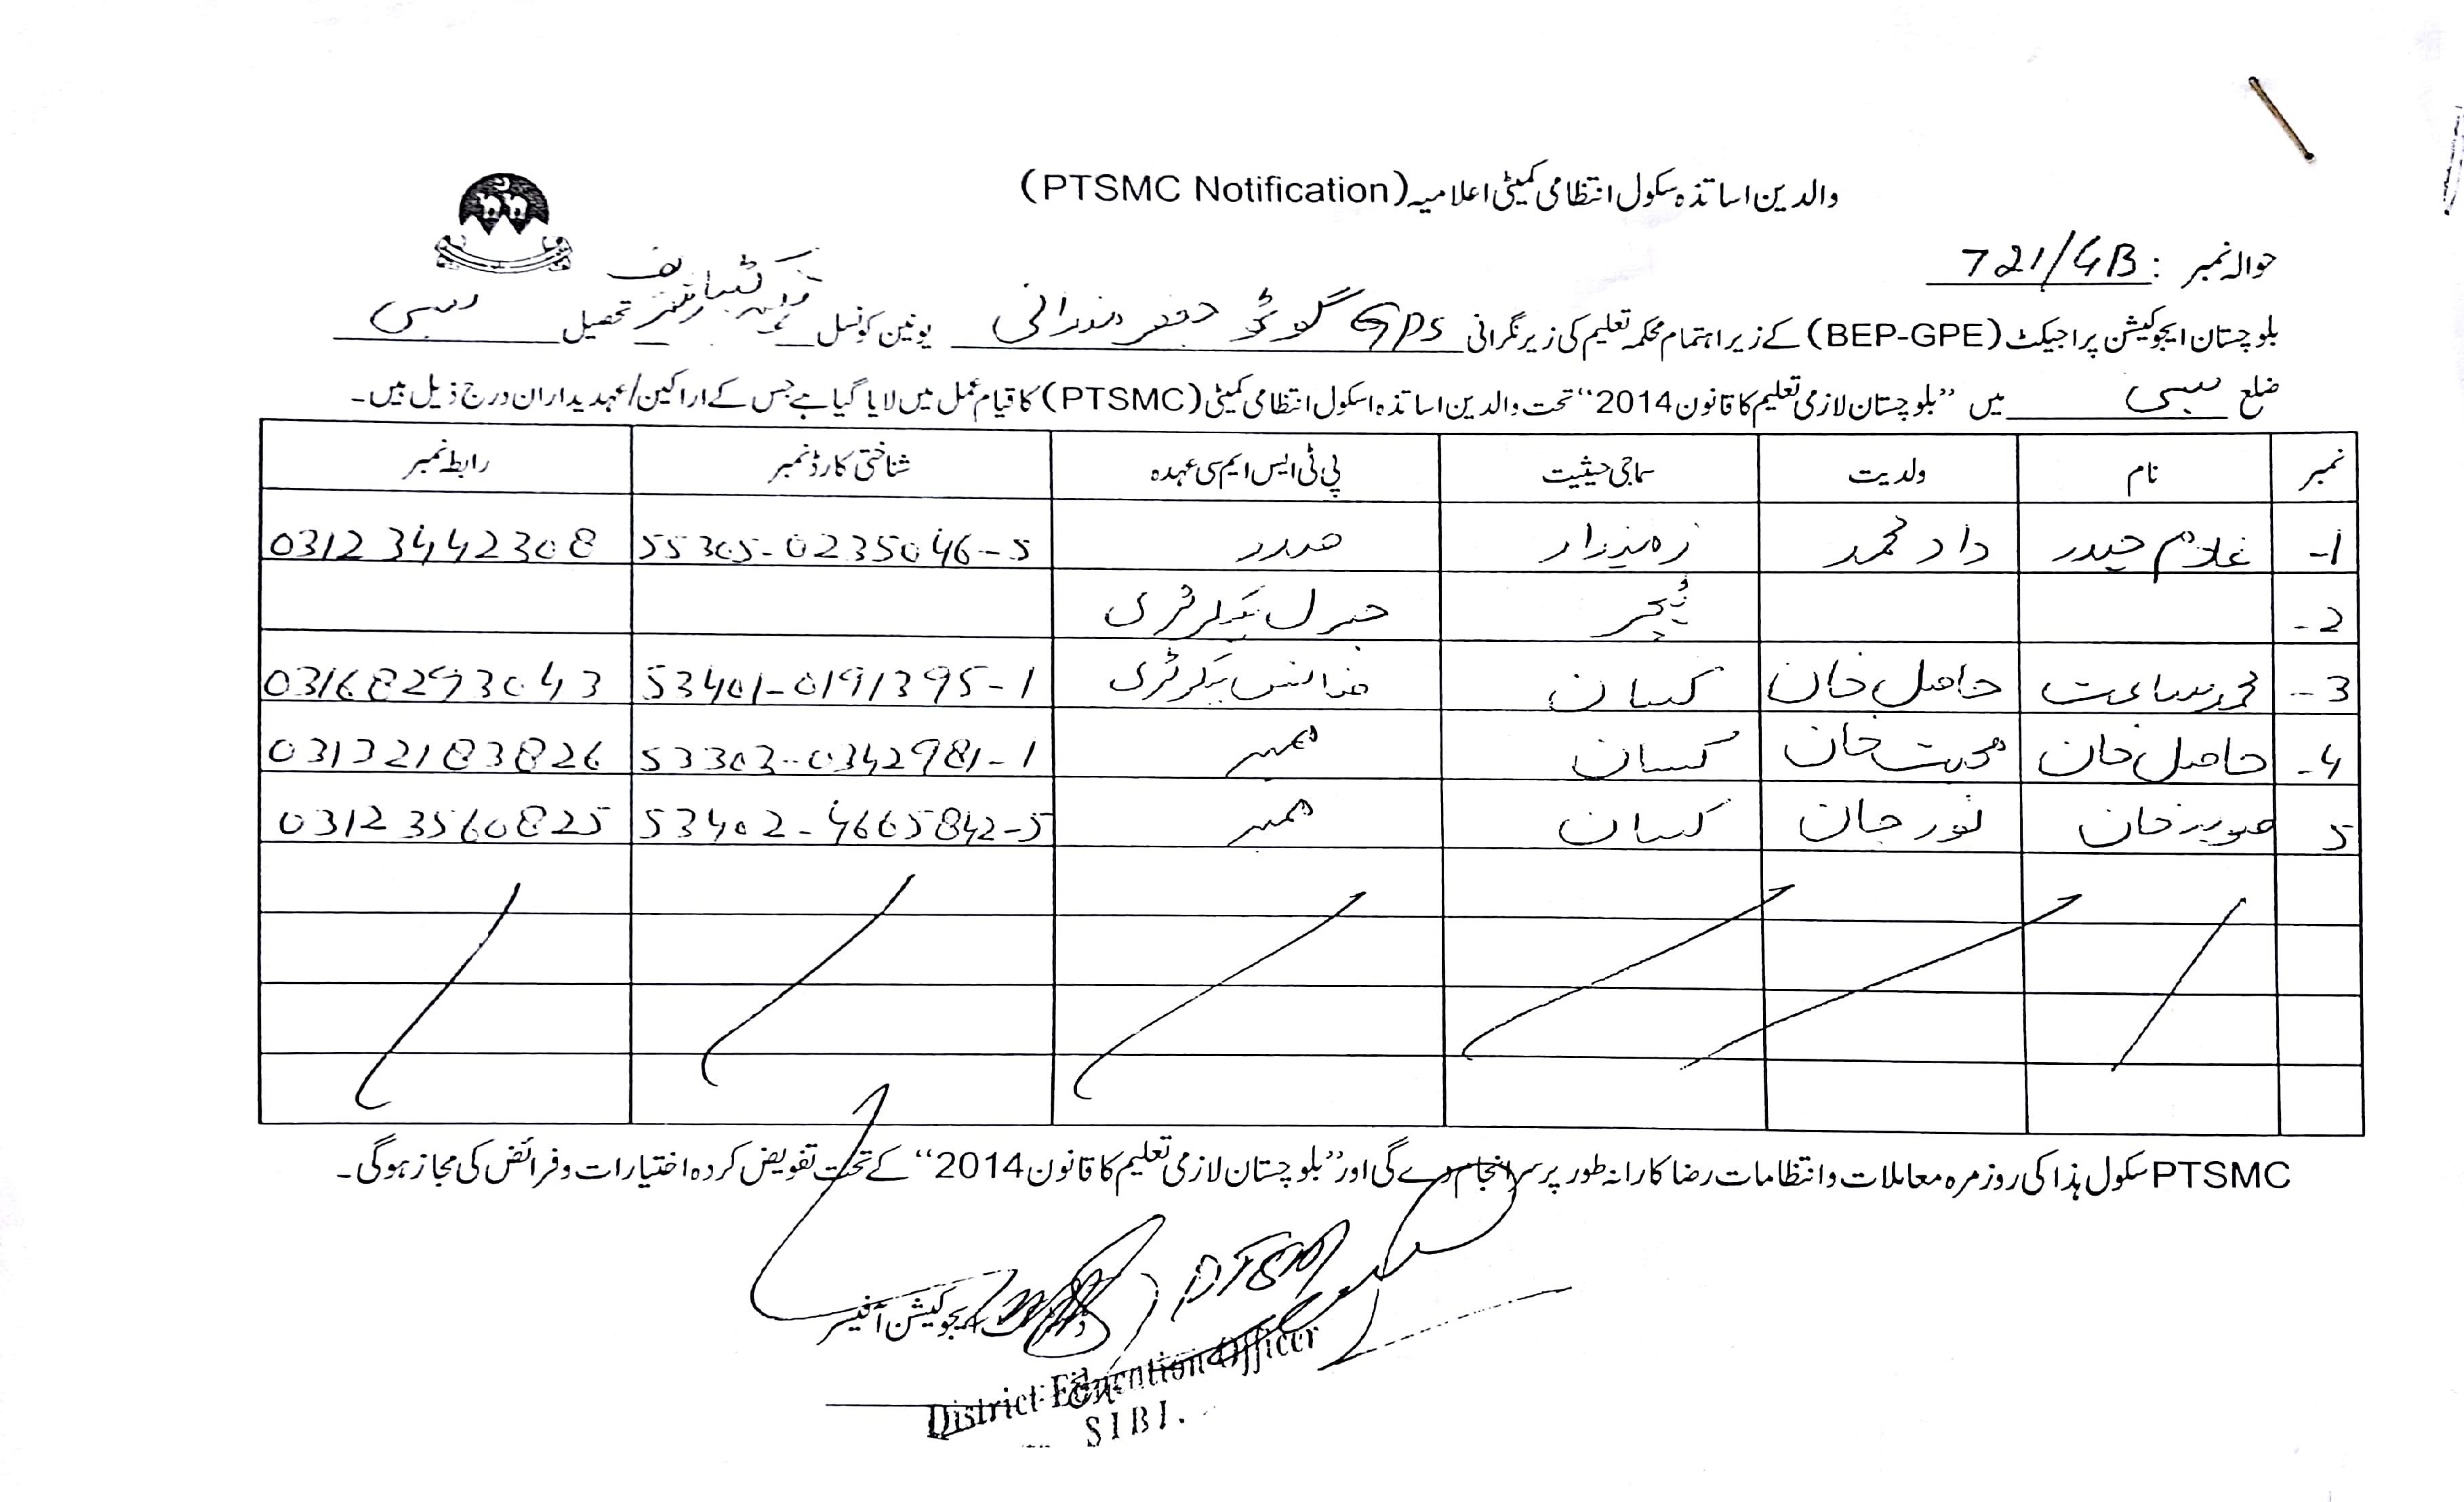 والدین اساتذہ سکول انتظامی کمیٹی اعلامیہ (PTSMC Notification)
حوالہ نمبر : 721/GB
بلوچستان ایجوکیشن پراجیکٹ (BEP-GPE) کے زیر اہتمام محکمہ تعلیم کی زیر نگرانی GPS گوٹھ جعفر مندرانی یونین کونسل تحصیل سبی
ضلع سبی میں ”بلوچستان لازمی تعلیم کا قانون 2014“ تحت والدین اساتذہ اسکول انتظامی کمیٹی (PTSMC) کا قیام عمل میں لایا گیا ہے جس کے اراکین/عہدیداران درج ذیل ہیں۔
نمبر نام ولدیت سماجی حیثیت پی ٹی ایس ایم سی عہدہ شناختی کارڈ نمبر رابطہ نمبر
1- غلام حیدر داد محمد زمیندار صدر 55305-0235046-5 03123442308
2- ٹیچر جنرل سیکرٹری
3- محمد حاصل خان کسان فنانس سیکرٹری 53401-0191395-1 03168293043
4- حاصل خان محبت خان کسان ممبر 53303-0342981-1 03132183826
5 خان نور جان کسان ممبر 53402-4665842-5 03123560825
PTSMC سکول ہذا کی روز مرہ معاملات و انتظامات رضا کارانہ طور پر سرانجام دے گی اور ”بلوچستان لازمی تعلیم کا قانون 2014“ کے تحت تفویض کردہ اختیارات و فرائض کی مجاز ہوگی۔
ایجوکیشن آفیسر
District Education Officer
SIBI.